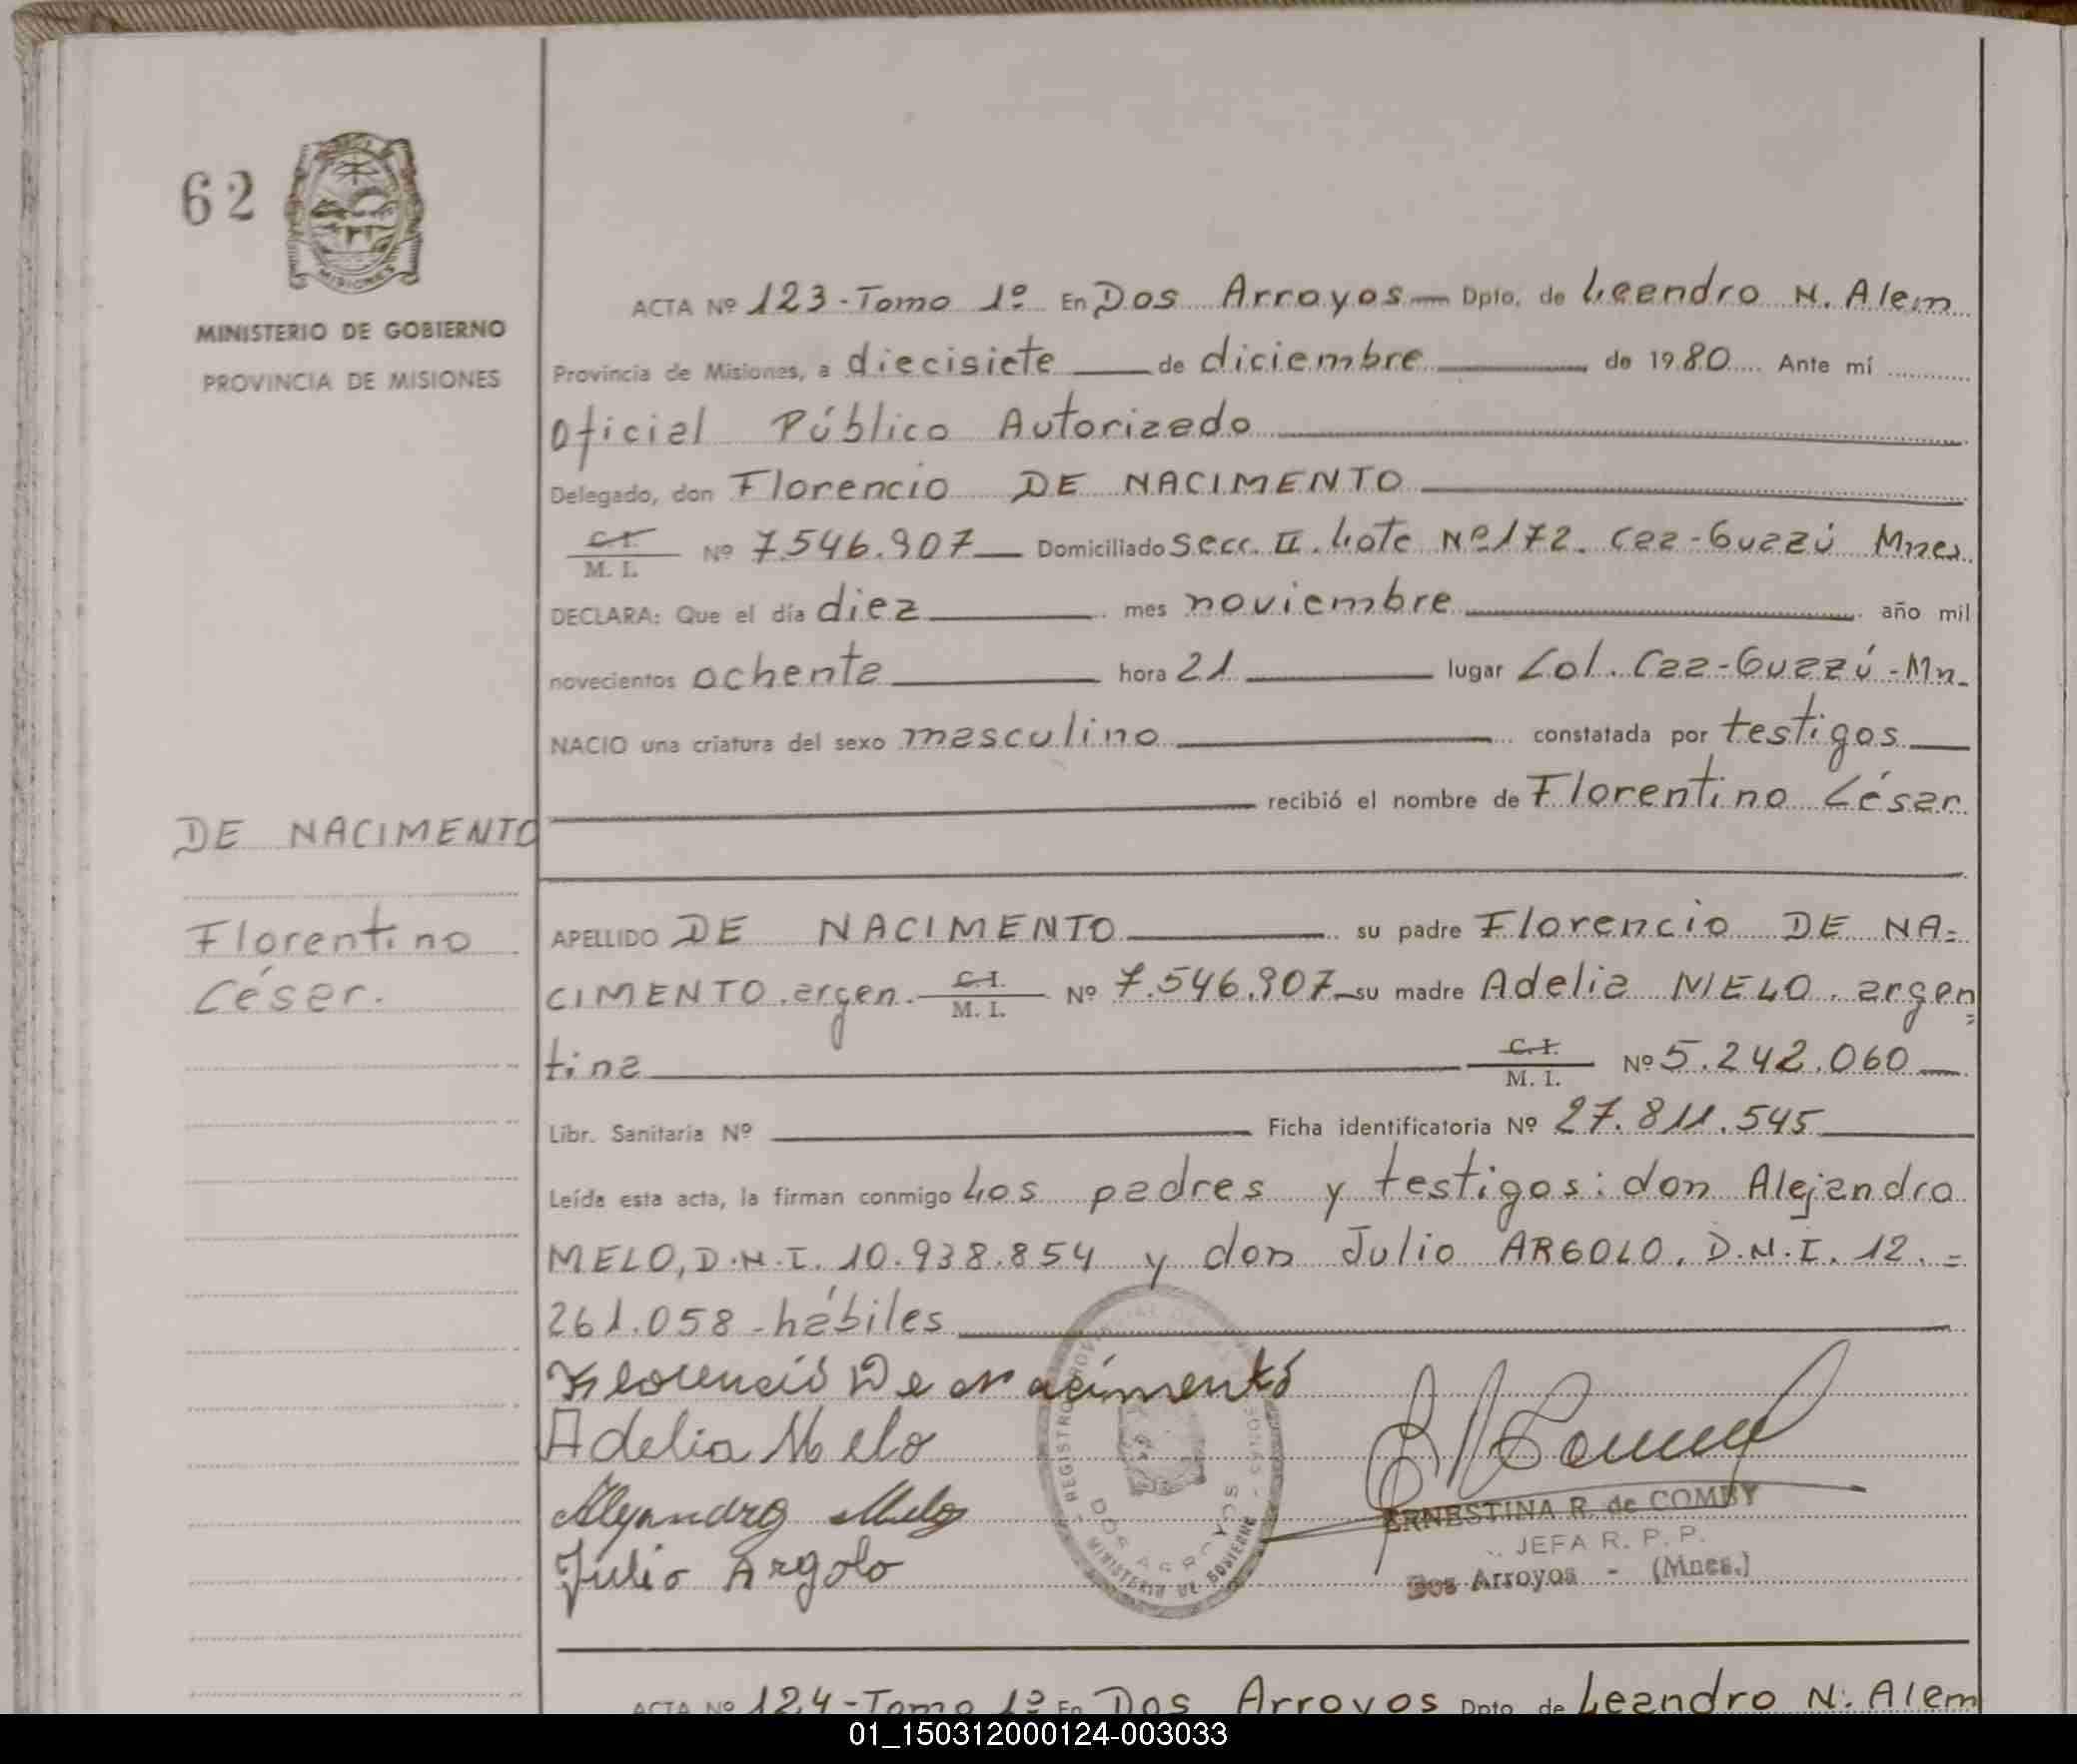 62
MISIONES
MINISTERIO DE GOBIERNO
PROVINCIA DE MISIONES
ACTA Nº 123-Tomo 1º En Dos Arroyos Dpto. de Leandro N. Alem
Provincia de Misiones, a diecisiete de diciembre de 1980 Ante mí
Oficial Público Autorizado
Delegado, don Florencio DE NACIMENTO
C.I.
M. I. Nº 7.546.907 Domiciliado Secc. II. Lote Nº 172. Caa-Guazú Mnes.
DECLARA: Que el día diez mes noviembre año mil
novecientos ochenta hora 21 lugar Col. Caa-Guazú-Mn.
NACIO una criatura del sexo masculino constatada por testigos
recibió el nombre de Florentino César.
DE NACIMENTO
Florentino
César.
APELLIDO DE NACIMENTO su padre Florencio DE NA=
CIMENTO. argen. C.I. M. I. Nº 7.546.907 su madre Adelia MELO. argen=
tina C.I. M. I. Nº 5.242.060
Libr. Sanitaria Nº Ficha identificatoria Nº 27.811.545
Leída esta acta, la firman conmigo Los padres y testigos: don Alejandro
MELO, D.N.I. 10.938.854 y don Julio ARGOLO. D.N.I. 12.=
261.058-hábiles
Florencio De Nacimento
Adelia Melo
Alejandro Melo
Julio Argolo
DOS ARROYOS
MINISTERIO DE GOBIERNO
ERNESTINA R. de COMBY
JEFA R. P. P.
Dos Arroyos - (Mnes.)
ACTA Nº 124-Tomo 1º En Dos Arroyos Dpto. de Leandro N. Alem
01_150312000124-003033